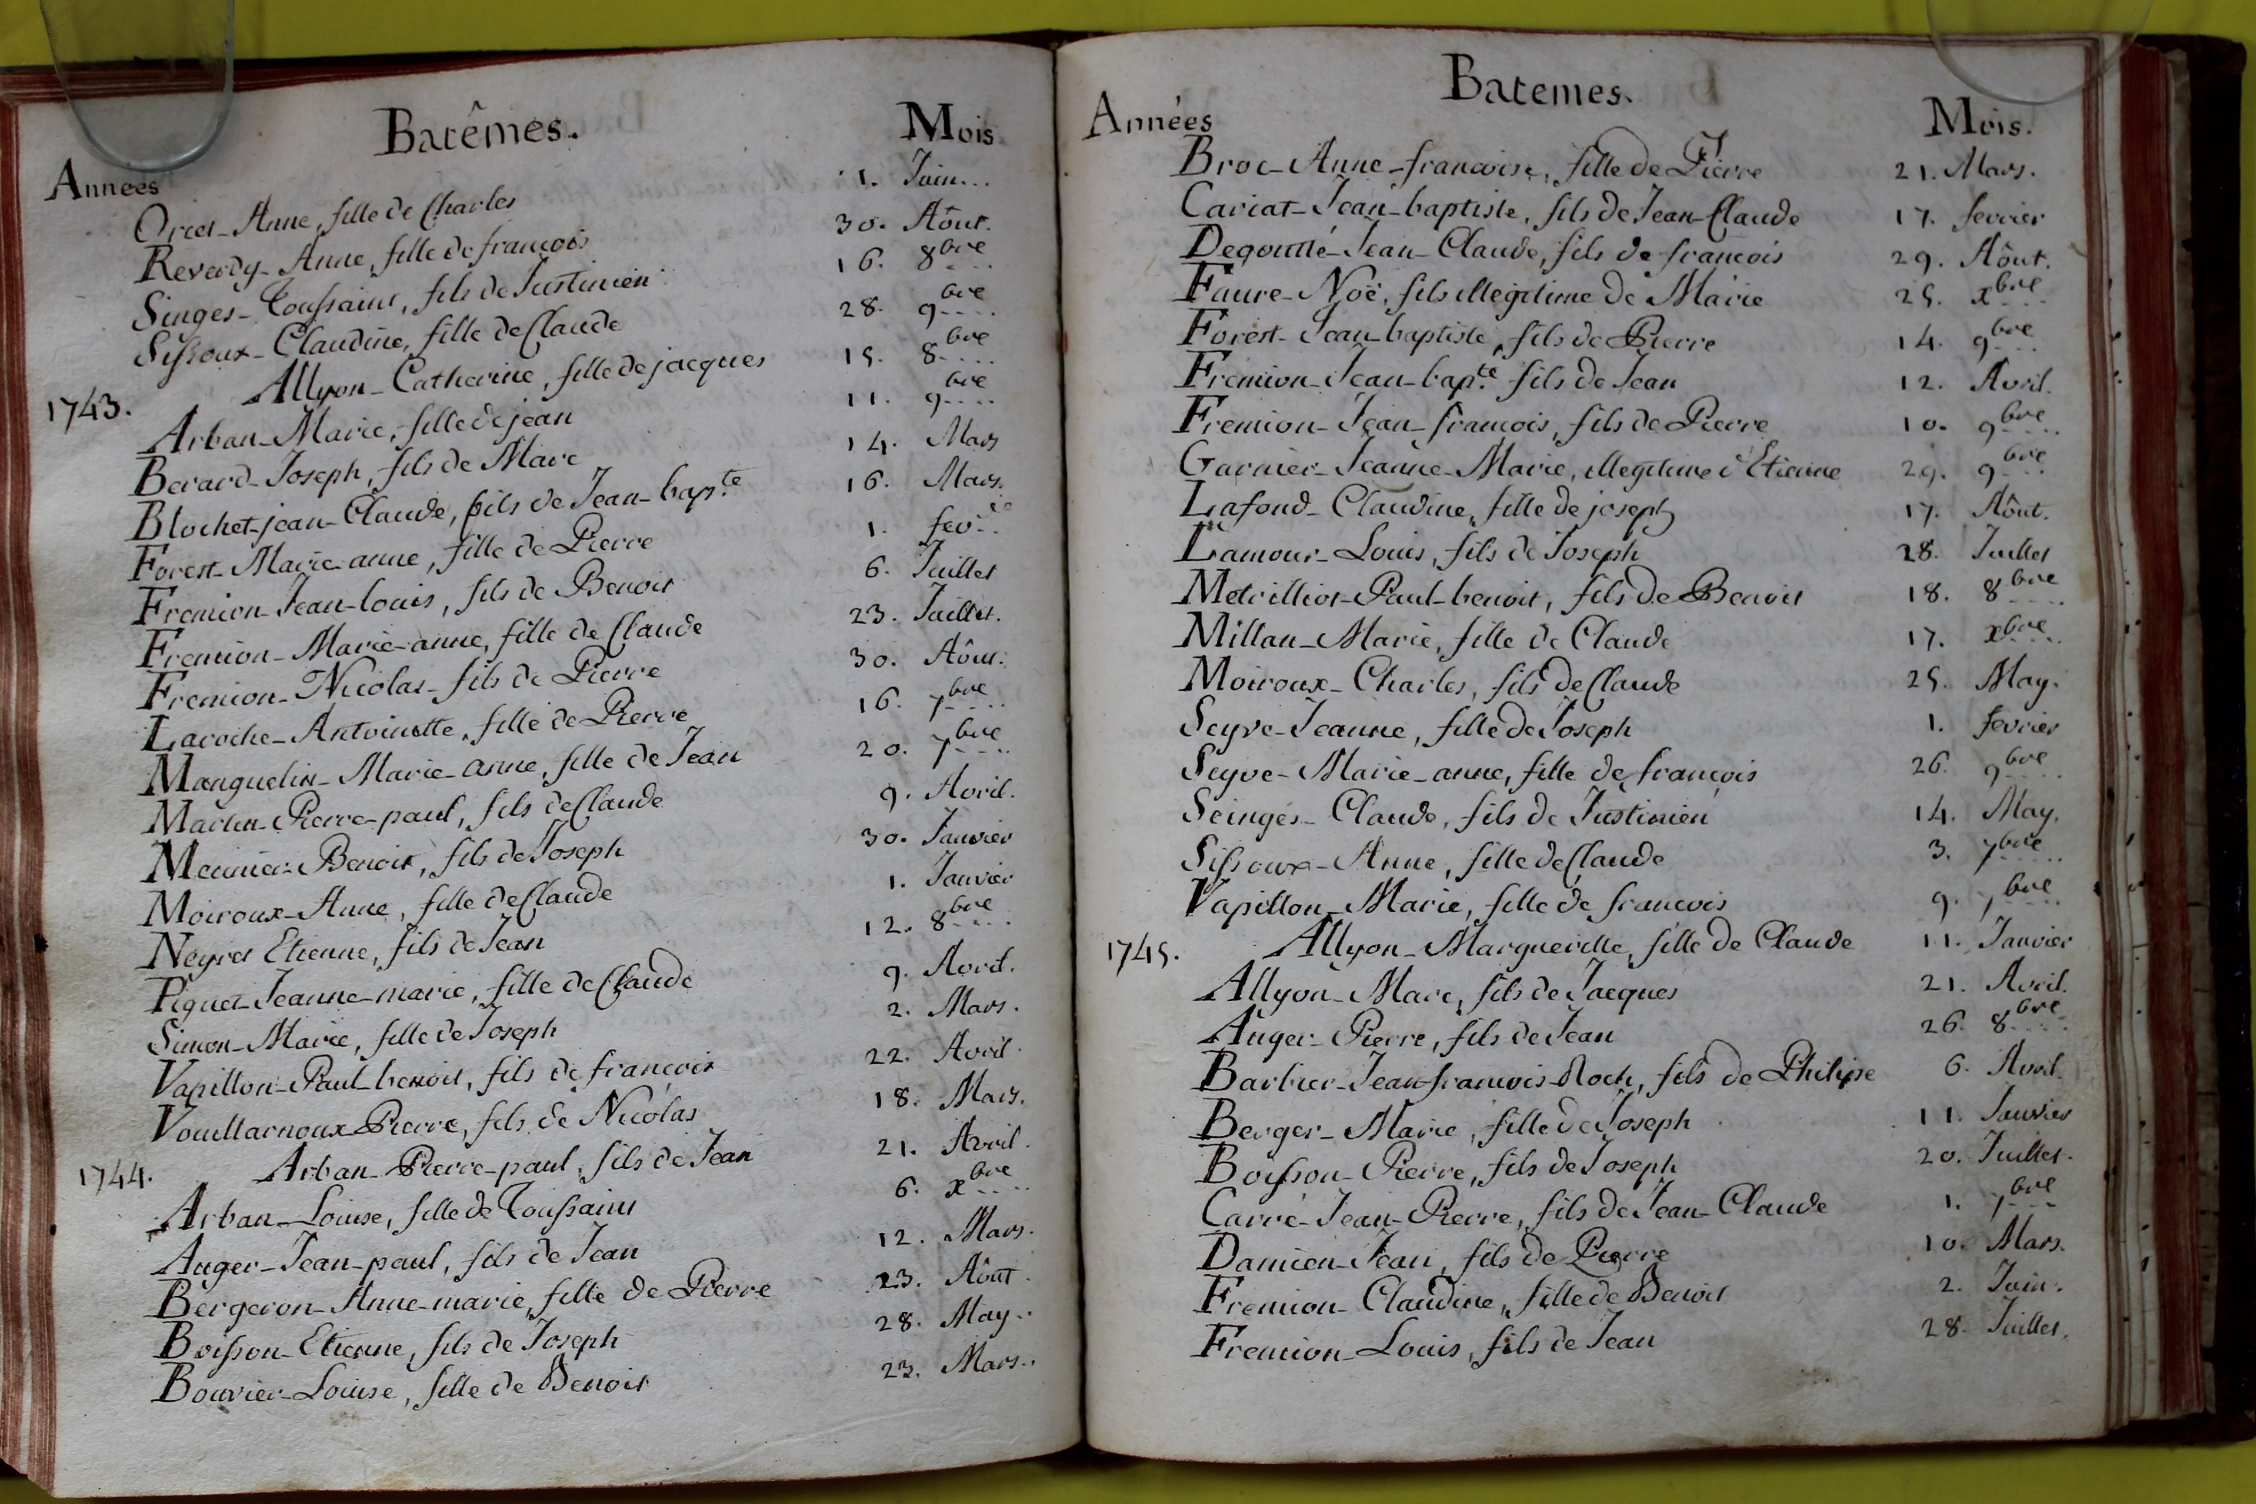 Batêmes.
Années Mois
Orcet-Anne, fille de Charles 1. Juin...
Reverdy-Anne, fille de françois 30. Aôut.
Singes-Toussaint, fils de Justinien 16. 8bre
Sissoux-Claudine, fille de Claude 28. 9bre
1743. Allyon-Catherine, fille de jacques 15. 8bre
Arban-Marie, fille de jean 11. 9bre
Berard-Joseph, fils de Marc 14. Mars
Blochet-jean-Claude, fils de Jean-bapte 16. Mars.
Forest-Marie-anne, fille de Pierre 1. fev.
Fremion-Jean-louis, fils de Benoit 6. Juillet
Fremion-Marie-anne, fille de Claude 23. Juillet.
Fremion-Nicolas-fils de Pierre 30. Aôut.
Laroche-Antoinette, fille de Pierre 16. 7bre
Manguelin-Marie-anne, fille de Jean 20. 7bre
Martin-Pierre-paul, fils de Claude 9. Avril.
Meunier-Benoit, fils de Joseph 30. Janvier
Moiroux-Anne, fille de Claude 1. Janvier
Neyret Etienne, fils de Jean 12. 8bre
Piquet-Jeanne-marie, fille de Claude 9. Avril.
Simon-Marie, fille de Joseph 2. Mars.
Vapillon-Paul-benoit, fils de francois 22. Avril.
Vouillarnoux Pierre, fils de Nicolas 18. Mars.
1744. Arban-Pierre-paul, fils de Jean 21. Avril.
Arban-Louise, fille de Toussaint 6. xbre
Auger-Jean-paul, fils de Jean 12. Mars.
Bergeron-Anne-marie, fille de Pierre 23. Aôut.
Boisson-Etienne, fils de Joseph 28. May.
Bouvier-Louise, fille de Benoit 23. Mars.
Batemes.
Années Mois.
Broc-Anne-francoise, fille de Pierre 21. Mars.
Cariat-Jean-baptiste, fils de Jean-Claude 17. fevrier
Degoutté-Jean-Claude, fils de francois 29. Aôut.
Faure-Noë, fils illegitime de Marie 25. xbre
Forest-Jean-baptiste, fils de Pierre 14. 9bre
Fremion-Jean-bapte. fils de Jean 12. Avril.
Fremion-Jean-francois, fils de Pierre 10. 9bre
Garnier-Jeanne-Marie, illegitime d'Etienne 29. 9bre
Lafond-Claudine, fille de joseph 17. Aôut.
Lamour-Louis, fils de Joseph 28. Juillet
Metrilliot-Paul-benoit, fils de Benoit 18. 8bre
Millan-Marie, fille de Claude 17. xbre
Moiroux-Charles, fils de Claude 25. May.
Seyve-Jeanne, fille de Joseph 1. fevrier
Seyve-Marie-anne, fille de françois 26. 9bre
Seinges-Claude, fils de Justinien 14. May.
Sissoux-Anne, fille de Claude 3. 7bre
Vapillon-Marie, fille de francois 9. 7bre
1745. Allyon-Marguerille, fille de Claude 11. Janvier
Allyon-Marc, fils de Jacques 21. Avril.
Auger-Pierre, fils de Jean 26. 8bre
Barbier-Jean-francois-Roch, fils de Philipe 6. Avril.
Berger-Marie, fille de Joseph 11. Janvier
Boisson-Pierre, fils de Joseph 20. Juillet.
Carré-Jean-Pierre, fils de Jean-Claude 1. 7bre
Damien-Jean, fils de Pierre 10. Mars.
Fremion-Claudine, fille de Benoit 2. Juin.
Fremion-Louis, fils de Jean 28. Juillet.